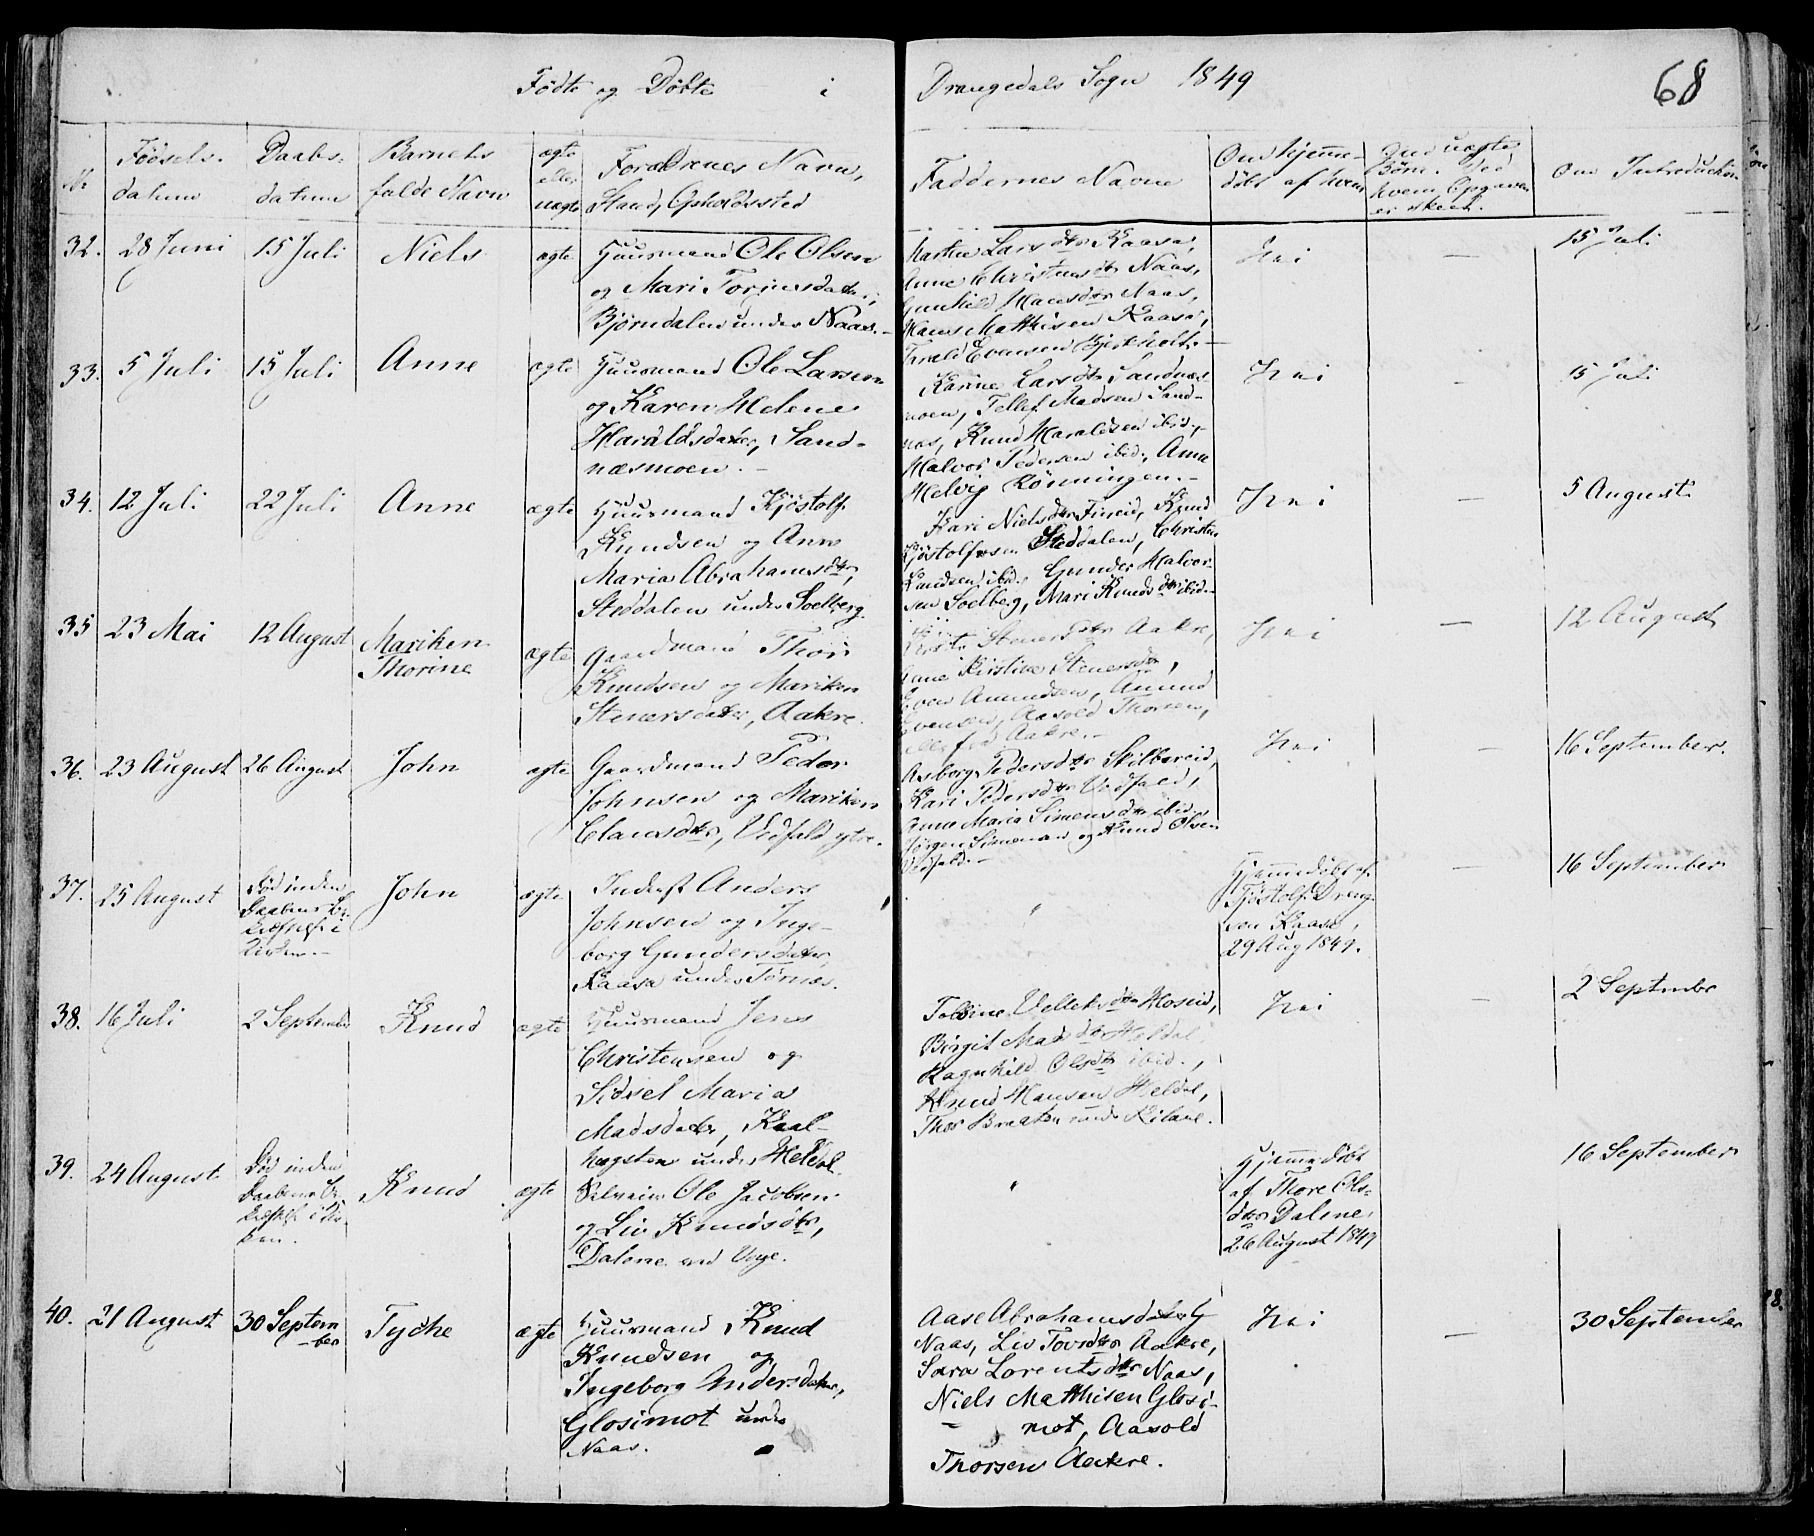 Fødte og Døbte i Drangedals Sogn 1849
68
No
Fødsels-
datum
Daabs-
datum
Barnets
fulde Navn
ægte
eller
uægte
Forældrenes Navn,
Stand, Opholdssted
Faddernes Navne
Om hjemme-
døbt af hvem
Om uægte
Børn. Ved
hvem Opgaven
er skeet.
Om Introduction
32. 28 Juni 15 Juli Niels ægte
Huusmand Ole Olsen
og Mari
Bjørndalen under Naas.-
Larsdtr Kaasa,
Anne Christensdtr Naas,
Gunhild Hansdtr Naas,
Hans Matthisen Kaasa,
Evensen
Nei
—
15 Juli
33. 5 Juli 15 Juli Anne ægte
Huusmand Ole Larsen
og Karen Helene
Haraldsdatter, Sand-
næsmoen.-
Karine Larsdtr Sandnæs
moen, Tellef Madsen Sand-
næs, Knud Haraldsen ibid.,
Halvor Pedersen ibid., Anne
Helvig Rønningen.-
Nei
-
15 Juli
34. 12 Juli 22 Juli Anne ægte
Huusmand Kjøstolf
Knudsen og Anne
Maria Abrahamsdtr,
Støddalen under Soelberg.
Kari Nielsdtr Knud
Kjøstolfsen Støddalen, Christen
Knudsen ibid., Gunder Halvor-
sen Soelberg, Mari Knudsdtr ibid.-
Nei
-
5 August
35 23 Mai 12 August Mariken
Thorine
ægte
Gaardmand Thor
Knudsen og Mariken
Stenersdatter, Aakre.
Stenersdtr Aakre,
Kirstine Stenersdtr,
Even Amundsen, Amund
Evensen, Aasold Thorsen,
alle fra Aakre.-
Nei
—
12 August
36. 23 August 26 August John ægte
Gaardmand Peder
Johnsen og Mariken
Clausdtr, Vefald, ytre.
Asborg Pedersdtr Skilbereid,
Kari Pedersdtr Vefald,
Anne Maria Simensdtr ibid.,
Jørgen Simonsen og Knud Olsen
Vefald.-
Nei
-
16 September.
37. 25 August
Død inden
Daabens Be-
kræftelse i
Kirken.-
John ægte
Inderst Anders
Johnsen og Inge-
borg Gundersdatter,
Kaasa under Tørnes.
"
Hjemmedøbt af
Tjøstolf Dreng-
sen Kaasa,
29 Aug 1849.
-
16 September
38. 16 Juli 2 September Knud ægte
Huusmand Jens
Christensen og
Sidsel Maria
Madsdatter, Kaal-
hagsten under Heldøl.
Tolline Velleksdtr Moseid,
Birgit Madsdtr Heldøl,
Ragnhild Olsdtr ibid.,
Knud Hansen Heldøl,
Thor Braaten under Kilane.
Nei
-
2 September
39. 24 August
Død inden
Daabens Be-
kræftelse i Kir-
ken.
Knud ægte
Selveier Ole Jacobsen
og Liv Knudsdtr,
Dalene ved Voje.
"
Hjemmedøbt
af Thore Ols-
dtr Dalene,
26 August 1849
16 September
40. 21 August 30 Septem-
ber
Tyche ægte
Huusmand Knud
Knudsen og
Ingeborg Andersdatter,
Glosimot under
Naas.
Aase Abrahamsdatter
Naas, Liv Tovsdtr Aakre,
Sara Lorentsdtr Naas,
Niels Matthisen Glosi-
mot, Aasold
Thorsen Aakre.
Nei
—
30 September